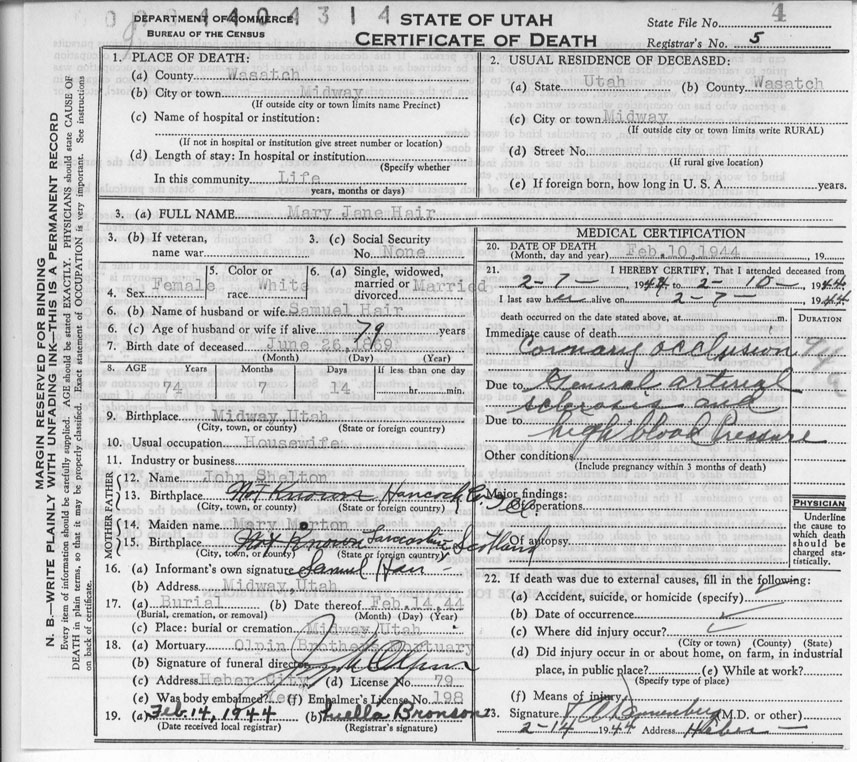 DEPARTMENT OF COMMERCE
BUREAU OF THE CENSUS
STATE OF UTAH
CERTIFICATE OF DEATH
State File No. 4
Registrar's No. 5
MARGIN RESERVED FOR BINDING
N. B.—WRITE PLAINLY WITH UNFADING INK—THIS IS A PERMANENT RECORD
Every item of information should be carefully supplied. AGE should be stated EXACTLY. PHYSICIANS should state CAUSE OF
DEATH in plain terms, so that it may be properly classified. Exact statement of OCCUPATION is very important. See instructions
on back of certificate.
1. PLACE OF DEATH:
(a) County Wasatch
(b) City or town Midway
(If outside city or town limits name Precinct)
(c) Name of hospital or institution:
(If not in hospital or institution give street number or location)
(d) Length of stay: In hospital or institution
(Specify whether
In this community Life
years, months or days)
2. USUAL RESIDENCE OF DECEASED:
(a) State Utah (b) County Wasatch
(c) City or town Midway
(If outside city or town limits write RURAL)
(d) Street No.
(If rural give location)
(e) If foreign born, how long in U. S. A. years.
3. (a) FULL NAME Mary Jane Hair
3. (b) If veteran, name war
3. (c) Social Security No. None
4. Sex Female
5. Color or race White
6. (a) Single, widowed, married or divorced Married
6. (b) Name of husband or wife Samuel Hair
6. (c) Age of husband or wife if alive 79 years
7. Birth date of deceased June 26, 1869
(Month) (Day) (Year)
8. AGE Years Months Days If less than one day
74 7 14 hr. min.
9. Birthplace Midway Utah
(City, town, or county) (State or foreign country)
10. Usual occupation Housewife
11. Industry or business
FATHER
12. Name John Shelton
13. Birthplace Not Known Hancock Co.
(City, town, or county) (State or foreign country)
MOTHER
14. Maiden name Mary Morton
15. Birthplace Not Known Lancashire Scotland
(City, town, or county) (State or foreign country)
16. (a) Informant's own signature Samuel Hair
(b) Address Midway, Utah
17. (a) Burial (b) Date thereof Feb. 14, 44
(Burial, cremation, or removal) (Month) (Day) (Year)
(c) Place: burial or cremation Midway Utah
18. (a) Mortuary Olpin Brothers Mortuary
(b) Signature of funeral director Olpin
(c) Address Heber City (d) License No. 79
(e) Was body embalmed? Yes (f) Embalmer's License No. 198
19. (a) Feb. 14, 1944 (b) Luella Bronson
(Date received local registrar) (Registrar's signature)
MEDICAL CERTIFICATION
20. DATE OF DEATH
(Month, day and year) Feb. 10, 1944 , 19
21. I HEREBY CERTIFY, That I attended deceased from
2-7- 1944 to 2-10- 1944
I last saw alive on 2-7- 1944
death occurred on the date stated above, at m.
DURATION
Immediate cause of death
Coronary occlusion
Due to General arterial
sclerosis and
Due to high blood Pressure
Other conditions
(Include pregnancy within 3 months of death)
Major findings:
Of operations
Of autopsy
PHYSICIAN
Underline
the cause to
which death
should be
charged sta-
tistically.
22. If death was due to external causes, fill in the following:
(a) Accident, suicide, or homicide (specify)
(b) Date of occurrence
(c) Where did injury occur?
(City or town) (County) (State)
(d) Did injury occur in or about home, on farm, in industrial
place, in public place? (e) While at work?
(Specify type of place)
(f) Means of injury
23. Signature (M.D. or other)
2-14 1944 Address Heber